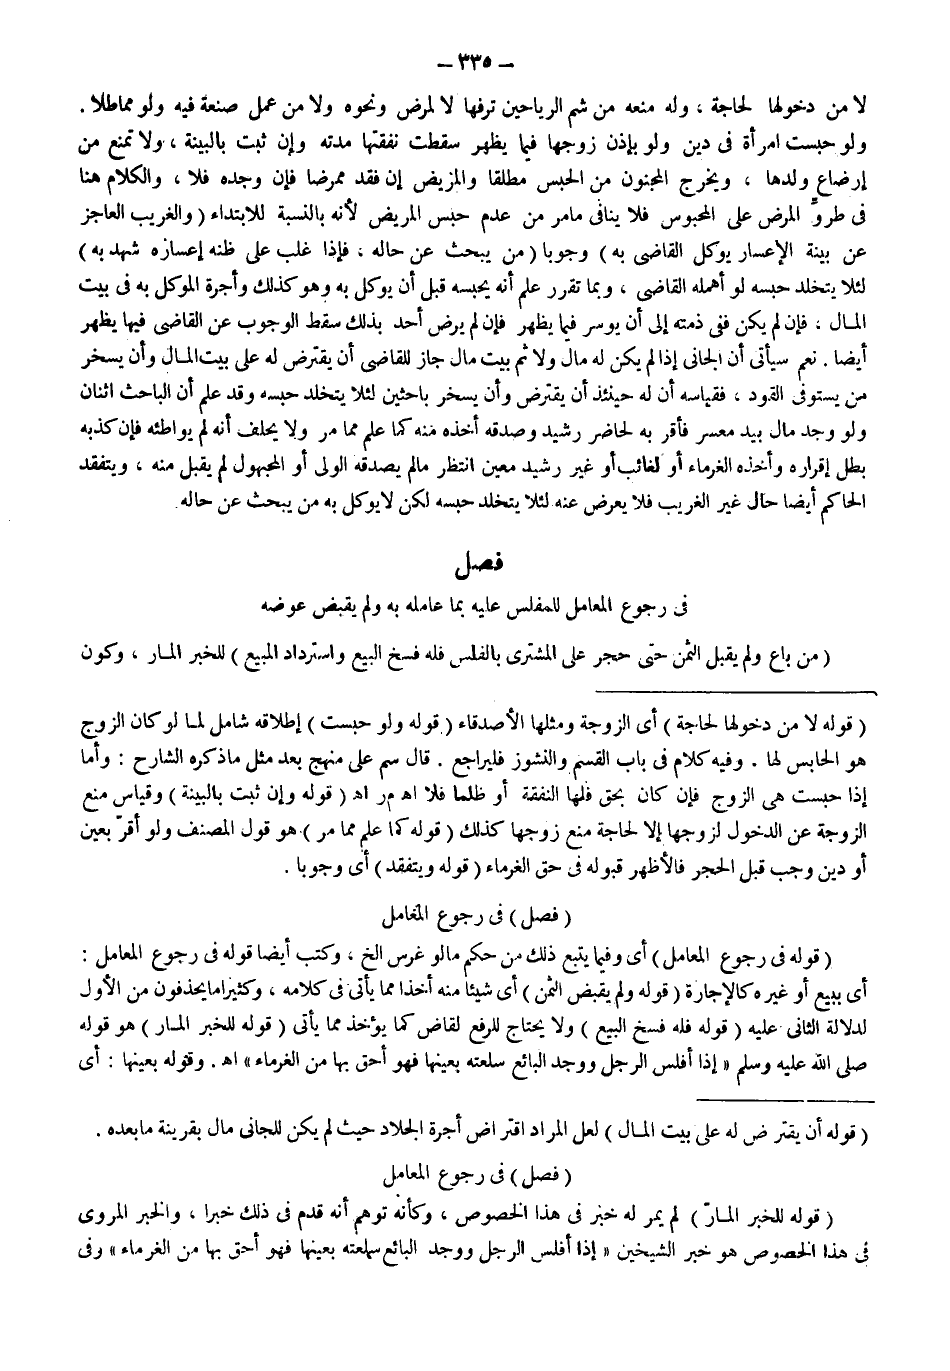 – ٣٣٥ –
لا من دخولها لحاجة ، وله منعه من شم الرياحين ترفها لا لمرض ونحوه ولا من عمل صنعة فيه ولو مماطلا .
ولو حبست امرأة فى دين ولو بإذن زوجها فيما يظهر سقطت نفقتها مدته وإن ثبت بالبينة ، ولا تمنع من
إرضاع ولدها ، ويخرج المجنون من الحبس مطلقا والمريض إن فقد ممرضا فإن وجده فلا ، والكلام هنا
فى طروّ المرض على المحبوس فلا ينافى مامر من عدم حبس المريض لأنه بالنسبة للابتداء ( والغريب العاجز
عن بينة الإعسار يوكل القاضى به ) وجوبا ( من يبحث عن حاله ، فإذا غلب على ظنه إعساره شهد به )
لئلا يتخلد حبسه لو أهمله القاضى ، وبما تقرر علم أنه يحبسه قبل أن يوكل به وهو كذلك وأجرة الموكل به فى بيت
المال ، فإن لم يكن ففى ذمته إلى أن يوسر فيما يظهر فإن لم يرض أحد بذلك سقط الوجوب عن القاضى فيها يظهر
أيضا . نعم سيأتى أن الجانى إذا لم يكن له مال ولا ثم بيت مال جاز للقاضى أن يقترض له على بيت المال وأن يسخر
من يستوفى القود ، فقياسه أن له حينئذ أن يقترض وأن يسخر باحثين لئلا يتخلد حبسه وقد علم أن الباحث اثنان
ولو وجد مال بيد معسر فأقر به لحاضر رشيد وصدقه أخذه منه كما علم مما مر ولا يحلف أنه لم يواطئه فإن كذبه
بطل إقراره وأخذه الغرماء أو لغائب أو غير رشيد معين انتظر مالم يصدقه الولى أو المجهول لم يقبل منه ، ويتفقد
الحاكم أيضا حال غير الغريب فلا يعرض عنه لئلا يتخلد حبسه لكن لايوكل به من يبحث عن حاله
فصل
فى رجوع المعامل للمفلس عليه بما عامله به ولم يقبض عوضه
( من باع ولم يقبل الثمن حتى حجر على المشترى بالفلس فله فسخ البيع واسترداد المبيع ) للخبر المار ، وكون
( قوله لا من دخولها لحاجة ) أى الزوجة ومثلها الأصدقاء ( قوله ولو حبست ) إطلاقه شامل لما لو كان الزوج
هو الحابس لها . وفيه كلام فى باب القسم والنشوز فليراجع . قال سم على منهج بعد مثل ماذكره الشارح : وأما
إذا حبست هى الزوج فإن كان بحق فلها النفقة أو ظلما فلا اه م ر اه ( قوله وإن ثبت بالبينة ) وقياس منع
الزوجة عن الدخول لزوجها إلا لحاجة منع زوجها كذلك ( قوله كما علم مما مر ) هو قول المصنف ولو أقرّ بعين
أو دين وجب قبل الحجر فالأظهر قبوله فى حق الغرماء ( قوله ويتفقد ) أى وجوبا .
( فصل ) فى رجوع المعامل
( قوله فى رجوع المعامل ) أى وفيما يتبع ذلك من حكم مالو غرس الخ ، وكتب أيضا قوله فى رجوع المعامل :
أى ببيع أو غيره كالإجارة ( قوله ولم يقبض الثمن ) أى شيئا منه أخذا مما يأتى فى كلامه ، وكثيرا مايحذفون من الأول
لدلالة الثانى عليه ( قوله فله فسخ البيع ) ولا يحتاج للرفع لقاض كما يؤخذ مما يأتى ( قوله للخبر المار ) هو قوله
صلى الله عليه وسلم « إذا أفلس الرجل ووجد البائع سلعته بعينها فهو أحق بها من الغرماء » اه . وقوله بعينها : أى
( قوله أن يقترض له على بيت المال ) لعل المراد اقتراض أجرة الجلاد حيث لم يكن للجانى مال بقرينة مابعده .
( فصل ) فى رجوع المعامل
( قوله للخبر المارّ ) لم يمر له خبر فى هذا الخصوص ، وكأنه توهم أنه قدم فى ذلك خبرا ، والخبر المروى
فى هذا الخصوص هو خبر الشيخين « إذا أفلس الرجل ووجد البائع سلعته بعينها فهو أحق بها من الغرماء » وفى